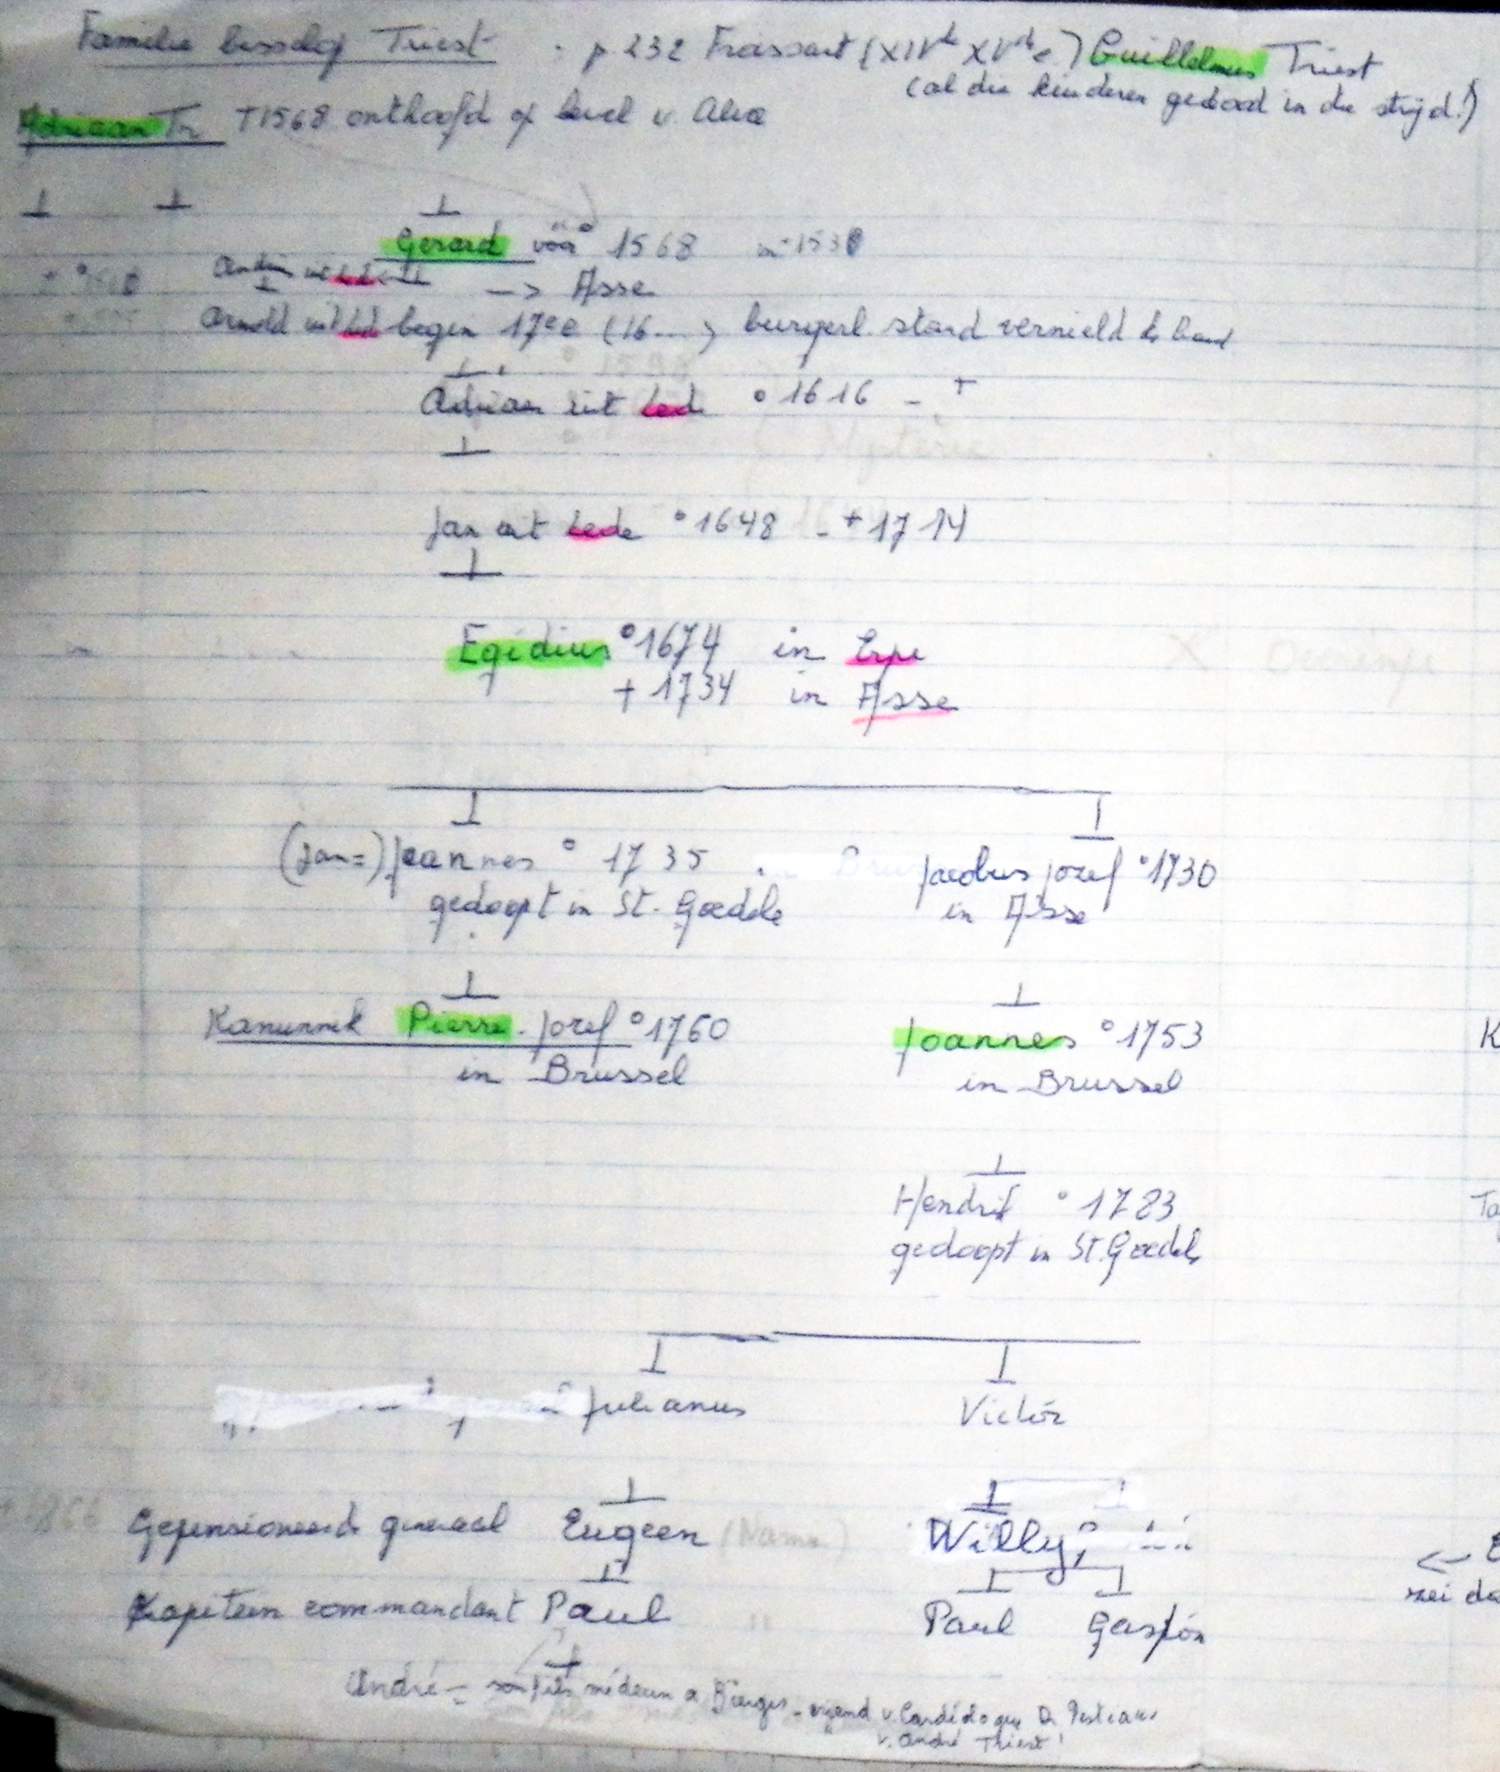 Familie bisschop Triest . p. 232 Froissart (XIVde XVde e.) Guillelmus Triest
(al die kinderen gedood in de strijd!)
Adriaan Tr. +1568 onthoofd op bevel v. Alva
Gerard vóór 1568 1538
-> Asse
Arnold uit Led begin 17e e (16...) burgerl. stand vernield
° 1598
Adriaan uit Led ° 1616 - +
Mystérie
Jan uit Lede ° 1648 - + 1714
Egidius ° 1674 in Erpe
+ 1734 in Asse
(Jan=) Joannes ° 1735
gedoopt in St. Goedele
Jacobus Jozef ° 1730
in Asse
Kanunnik Pierre-Jozef ° 1760
in Brussel
Joannes ° 1753
in Brussel
K
Hendrik ° 1783
gedoopt in St. Goedele
Ta
Julianus Victor
Gepensioneerd generaal Eugeen (Namen) Willy,
<-
Kapitein commandant Paul Paul Gaston
zei da
André = son fils médecin a - vriend v. Cardiologue Dr.
v. André Thiest